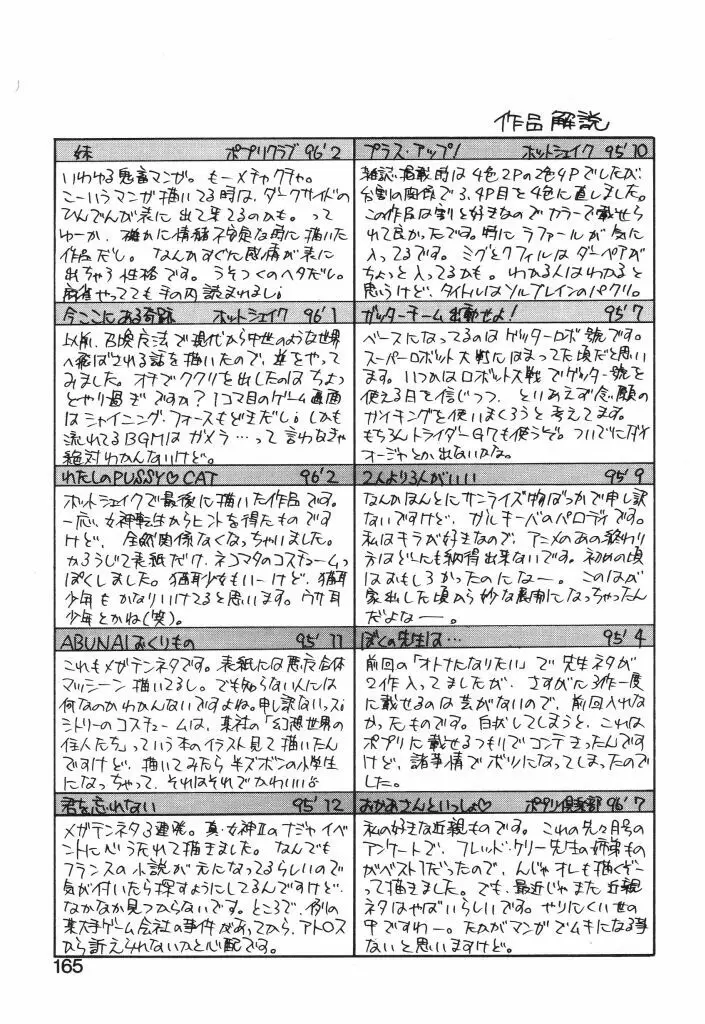 作品解説
妹 ポプリクラブ 96'2
いわゆる鬼畜マンガ。もーメチャクチャ。
こーいうマンガ描いてる時は、ダークサイドの
ひんでんが表に出て来てるのかも。って
ゆーか、確かに情緒不安定な時に描いた
作品だし。なんかすぐに感情が表に
出ちゃう性格です。うそつくのヘタだし。
麻雀やってても手の内読まれまし;
プラス・アップ! ホットシェイク 95'10
雑誌掲載時は4色2Pの2色4Pでしたが、
台割の関係で3、4P目を4色に直しました。
この作品は割と好きなのでカラーで載せら
れて良かったです。特にラファールが気に
入ってるです。ミグとクフィルはダーペアが
ちょっと入ってるかも。わかる人はわかると
思うけど、タイトルはソルブレインのパクリ。
今ここにある奇跡 ホットシェイク 96'1
以前、召喚魔法で現代から中世のような世界
へ飛ばされる話を描いたので、逆をやって
みました。オチでククリを出したのはちょっ
とやり過ぎですか?1コマ目のゲーム画面
はシャイニング・フォースもどきだし;しかも
流れてるBGMはガメラ…って言わなきゃ
絶対わかんないけど。
ゲッターチーム出動せよ! 95'7
ベースになってるのはゲッターロボ號です。
スーパーロボット大戦にはまってた頃だと思い
ます。いつかはロボット大戦でゲッター號を
使える日を信じつつ、といあえず念願の
ガイキングを使いまくろうと考えてます。
もちろんトライダーG7も使うぞ。ついでにダイ
オージャとか出ないかな。
わたしのPUSSY♡CAT 96'2
ホットシェイクで最後に描いた作品です。
一応、女神転生からヒントを得たものです
けど、全然関係なくなっちゃいました。
かろうじて表紙だけ、ネコマタのコスチュームっ
ぽくしました。猫耳少女もいーけど、猫耳
少年もかなりいけてると思います。ウサ耳
少年とかね(笑)。
2人より3人がいい 95'9
なんかほんとにサンライズ物ばっかで申し訳
ないですけど、ガルキーバのパロディです。
私はキラが好きなので、アニメのあの終わり
方はどーにも納得出来ないです。初めの頃
はおもしろかったのになー。このはが
家出した頃から妙な展開になっちゃったん
だよなー。
ABUNAIおくりもの 95'11
これもメガテンネタです。表紙には悪魔合体
マッシーン描いてるし。でも知らない人には
何なのかわかんないですよね。申し訳ないっス;
シトリーのコスチュームは、某社の「幻想世界の
住人たち」っていう本のイラスト見て描いたん
ですけど、描いてみたら半ズボンの小学生
になっちゃって、それはそれでかわいい
ぼくの先生は… 95'4
前回の「オトナになりたい」で先生ネタが
2作入ってましたが、さすがに3作一度
に載せるのは芸がないので、前回入れな
かったものです。白状してしまうと、これは
ポプリに載せるつもりでコンテきったんです
けど、諸事情でボツになってしまったので
した。
君を忘れない 95'12
メガテンネタ3連発。真・女神Ⅱのナジャイベ
ントに心うたれて描きました。なんでも
フランスの小説が元になってるらしいので
気が付いたら探すようにしてるんですけど、
なかなか見つからないです。ところで、例の
某大手ゲーム会社の事件があってから、アトロス
から訴えられないかと心配です。
おかあさんといっしょ♡ ポプリ倶楽部 96'7
私の好きな近親ものです。これの先々月号の
アンケートで、フレッド・ケリー先生の姉弟もの
がベスト1だったので、んじゃオレも描くぞー
って描きました。でも、最近じゃまた近親
ネタはやばいらしいです。やりにくい世の
中ですわー。たかがマンガでムキになる事
ないと思いますけど。
165